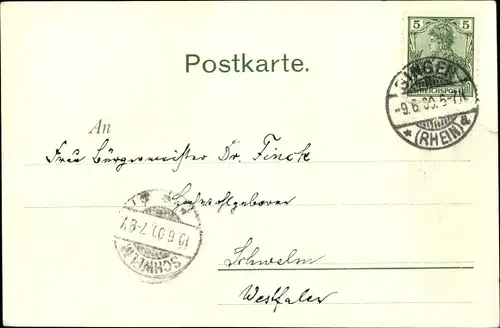 5 5
REICHSPOST
Postkarte.
BINGEN
-9.6.00.5-7N
* (RHEIN) a
An
Frau Bürgermeister Dr. Finck
Hochwohlgeboren
10.6.00.7-8V
SCHWELM
Schwelm
Westfalen